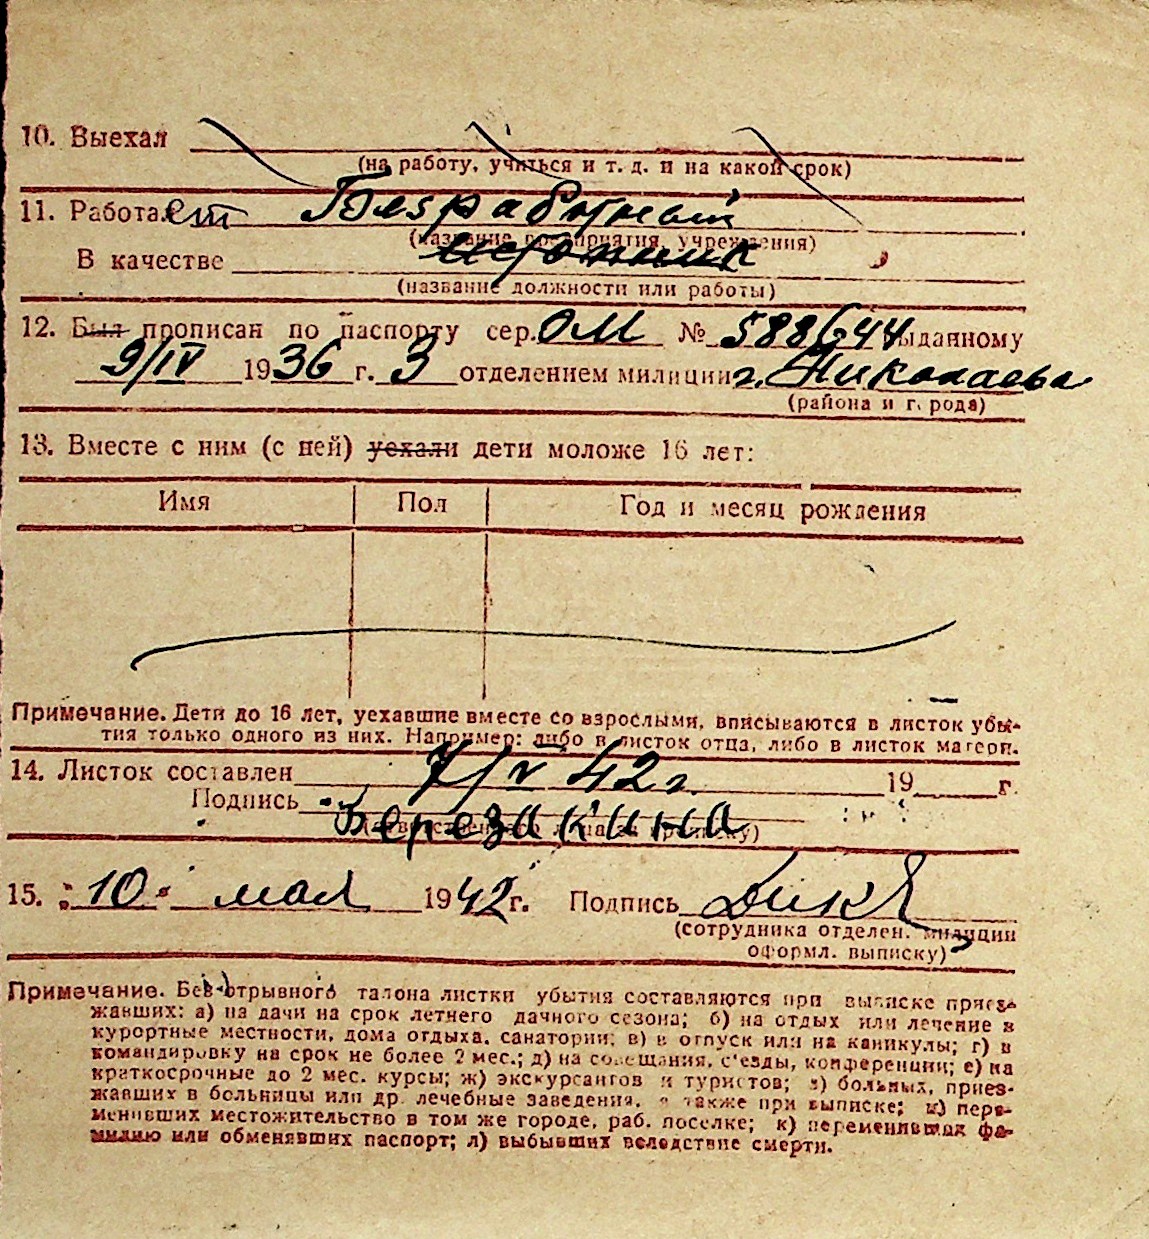 10. Выехал
(на работу, учиться и т. д. и на какой срок)
11. Работает Безработный
(название предприятия, учреждения)
В качестве
(название должности или работы)
12. Был прописан по паспорту сер. ОМ № 588644 выданному
9/IV 1936 г. 3 отделением милиции г. Николаева
(района и города)
13. Вместе с ним (с ней) уехали дети моложе 16 лет:
Имя Пол Год и месяц рождения
Примечание. Дети до 16 лет, уехавшие вместе со взрослыми, вписываются в листок убы-
тия только одного из них. Например: либо в листок отца, либо в листок матери.
14. Листок составлен 7/V 42 г. 19 г.
Подпись Березакина
15. „10“ мая 1942 г. Подпись
(сотрудника отделен. милиции
оформл. выписку)
Примечание. Без отрывного талона листки убытия составляются при выписке приез-
жавших: а) на дачи на срок летнего дачного сезона; б) на отдых или лечение в
курортные местности, дома отдыха, санатории; в) в отпуск или на каникулы; г) в
командировку на срок не более 2 мес.; д) на совещания, с'езды, конференции; е) на
краткосрочные до 2 мес. курсы; ж) экскурсантов и туристов; з) больных, приез-
жавших в больницы или др. лечебные заведения, а также при выписке; и) пере-
менивших местожительство в том же городе, раб. поселке; к) переменивших фа-
милию или обменявших паспорт; л) выбывших вследствие смерти.